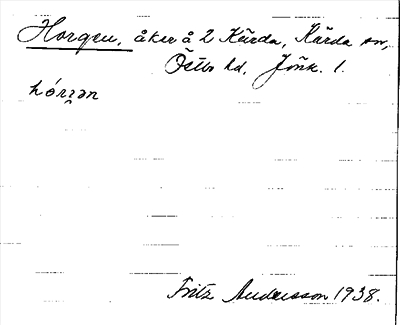 Horgen, åker å 2 Kärda, Kärda sn,
Östbo hd. Jönk. l.
hórʒən
Fritz Andersson 1938.